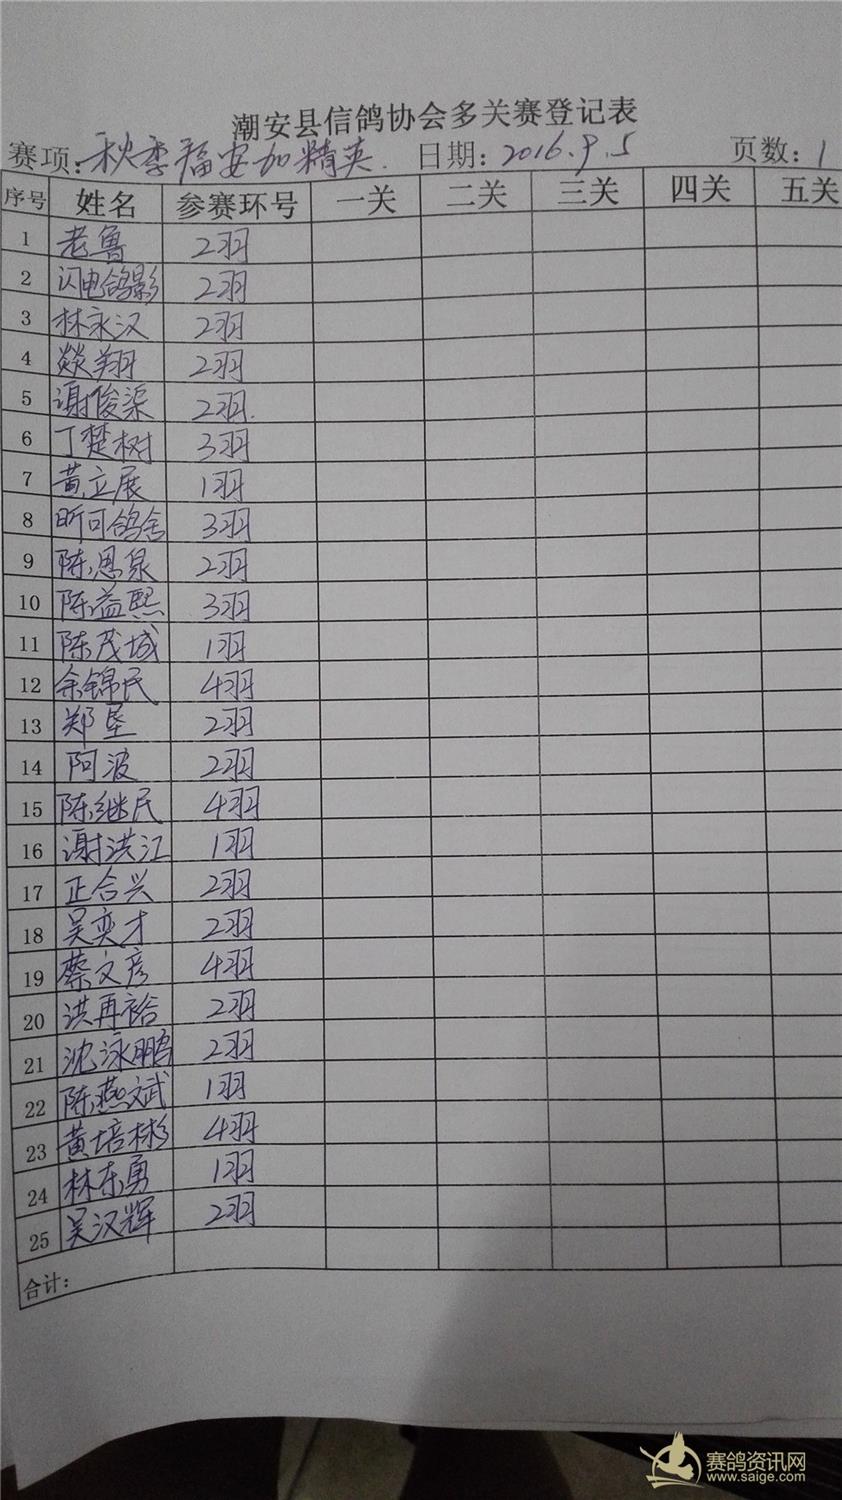 潮安县信鸽协会多关赛登记表
赛项:秋季福安加精英. 日期:2016.9.5 页数:1
序号 姓名 参赛环号 一关 二关 三关 四关 五关
1 老鲁 2羽
2 闪电鸽影 2羽
3 林永汉 2羽
4 燚翔 2羽
5 谢俊渠 2羽.
6 丁楚树 3羽
7 黄立展 1羽
8 昕可鸽舍 3羽
9 陈恩泉 2羽
10 陈益熙 3羽
11 陈茂城 1羽
12 余锦民 4羽
13 郑垦 2羽
14 阿波 2羽
15 陈继民 4羽
16 谢洪江 1羽
17 正合兴 2羽
18 吴奕才 2羽
19 蔡文彦 4羽
20 洪再裕 2羽
21 沈泳鹏 2羽
22 陈燕斌 1羽
23 黄培彬 4羽
24 林东勇 1羽
25 吴汉辉 2羽
合计:
赛鸽资讯网
www.saige.com